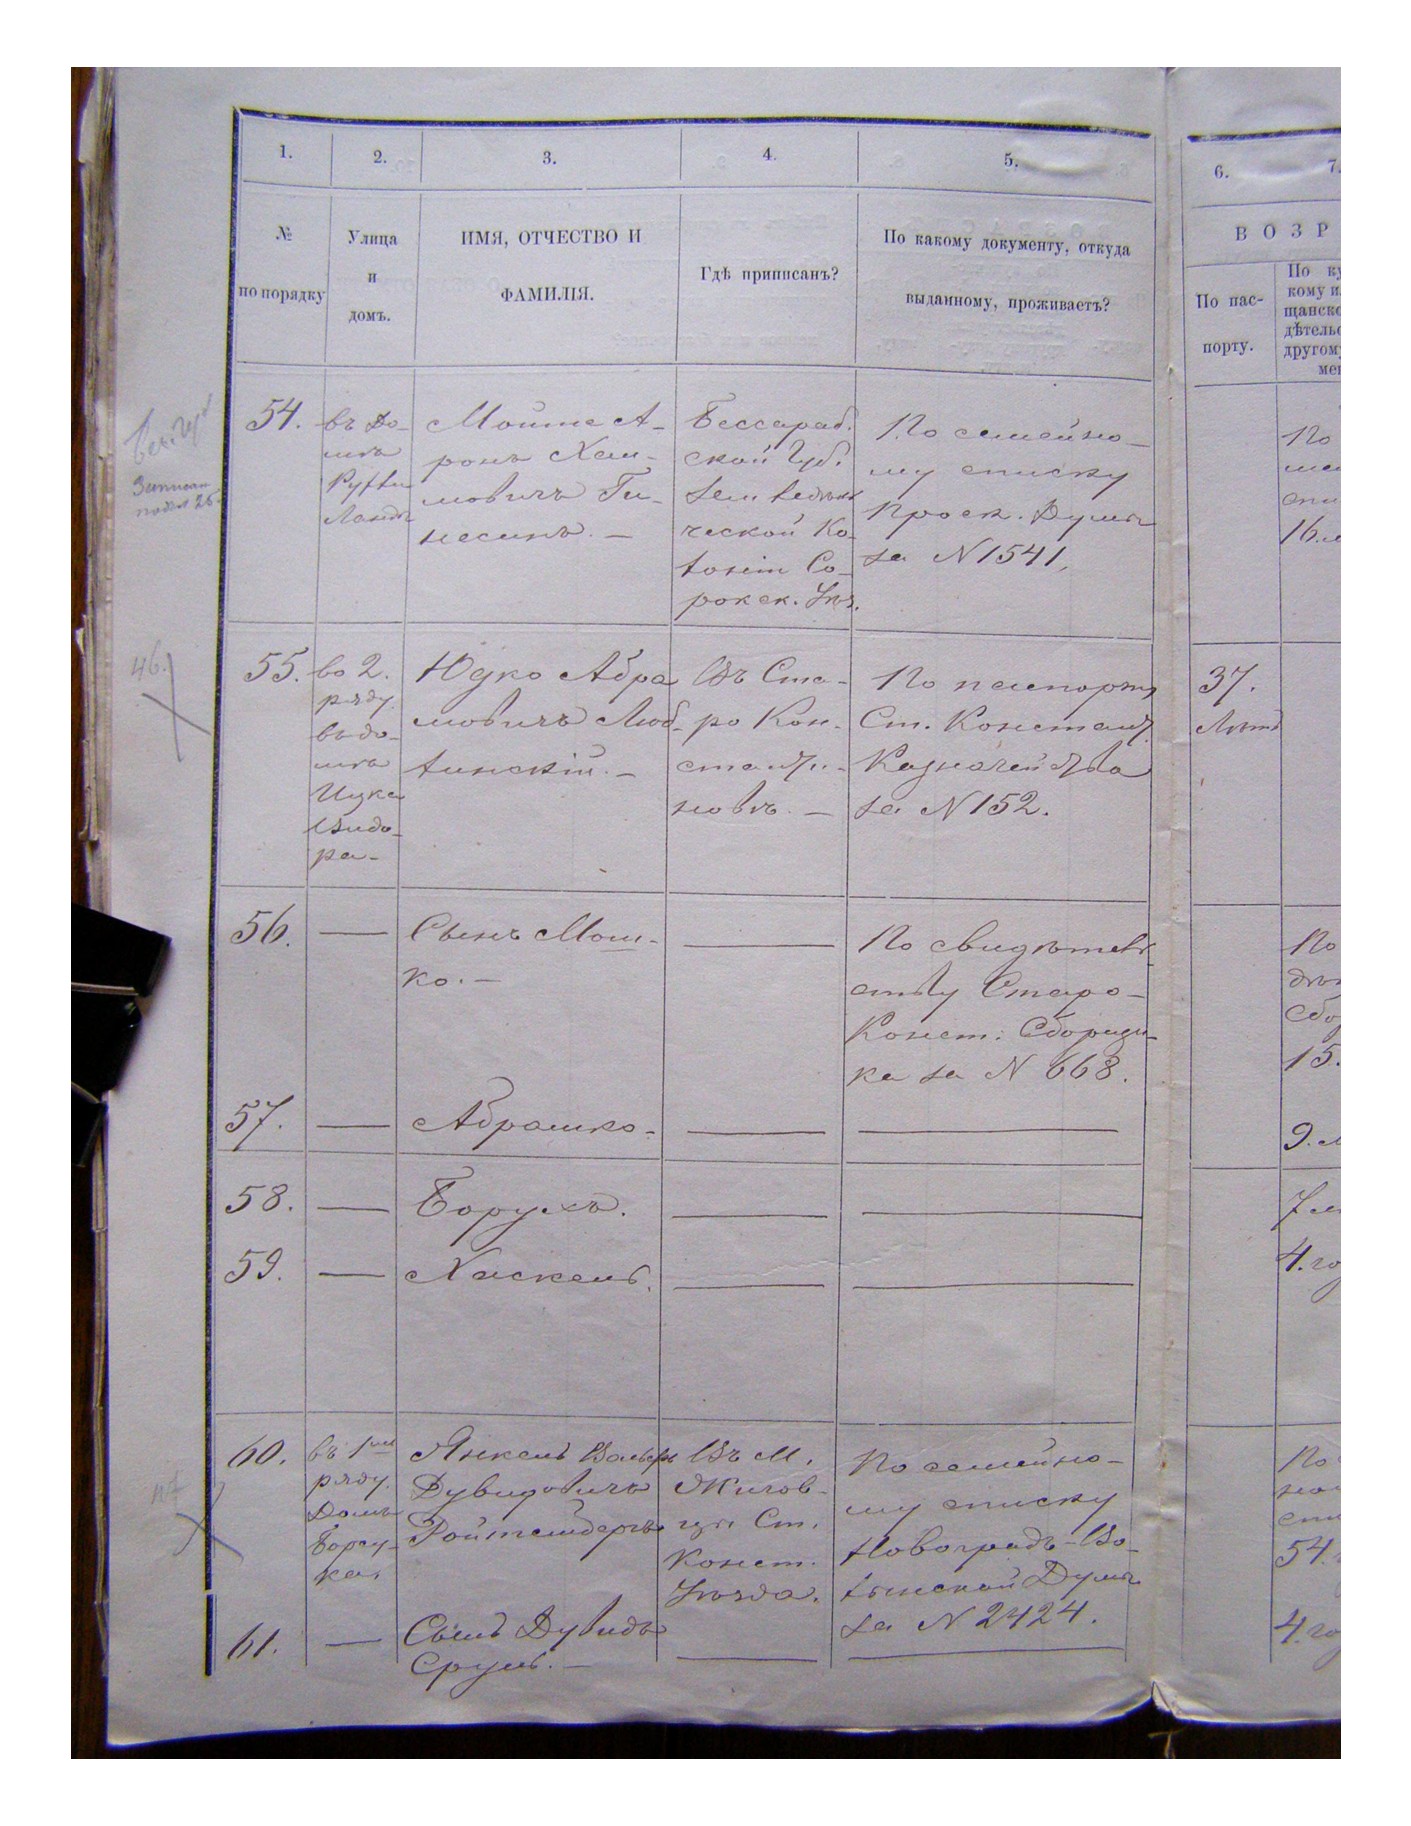 1.
2.
3.
4.
5.
6.
7.
№
по порядку
Улица
и
домъ.
ИМЯ, ОТЧЕСТВО И
ФАМИЛІЯ.
Гдѣ приписанъ?
По какому документу, откуда
выданному, проживаетъ?
ВОЗР
По пас-
порту.
По ку
кому и
щанско
дѣтельс
другому
мен
54.
въ до-
мѣ
Мошке А-
ронъ Хаи-
мовичъ Ги-
несинъ. —
Бессараб.
ской Губ.
Земледѣль
ческой Ко-
лоніи Со-
рокск. Уѣз.
По семейно-
му списку
Проск. Думы
за N 1541.
По
16. л
55.
во 2.
ряду
въ до-
мѣ
Ицка
Видо-
ра-
Юдко Абра
мовичъ Люб-
линскій. —
Въ Ста-
ро Кон-
станти-
новѣ. —
По паспорту
Ст. Констант.
Казначейства
за N 152.
37.
Лѣтъ
56. —
Сынъ Мош-
ко. —
По свидѣтель-
ству Старо-
Конст. Сборщи-
ка за N 668.
По
15.
57. — Абрашко. — —
9. л
58. — Борухъ. — —
7 л
59. — Хаскель. — —
4. го
60.
въ 1ом
ряду.
Домъ
Янкель Вольфъ
Дувидовичъ
Ройтенбергъ
Въ М.
Ст.
Конст.
Уѣзда.
По семейно-
му списку
Новоградъ-Во-
лынской Думы
за N 2424.
По
54.
61. — Сынъ Дувидъ
Сруль. —
4. го
46.
Записан